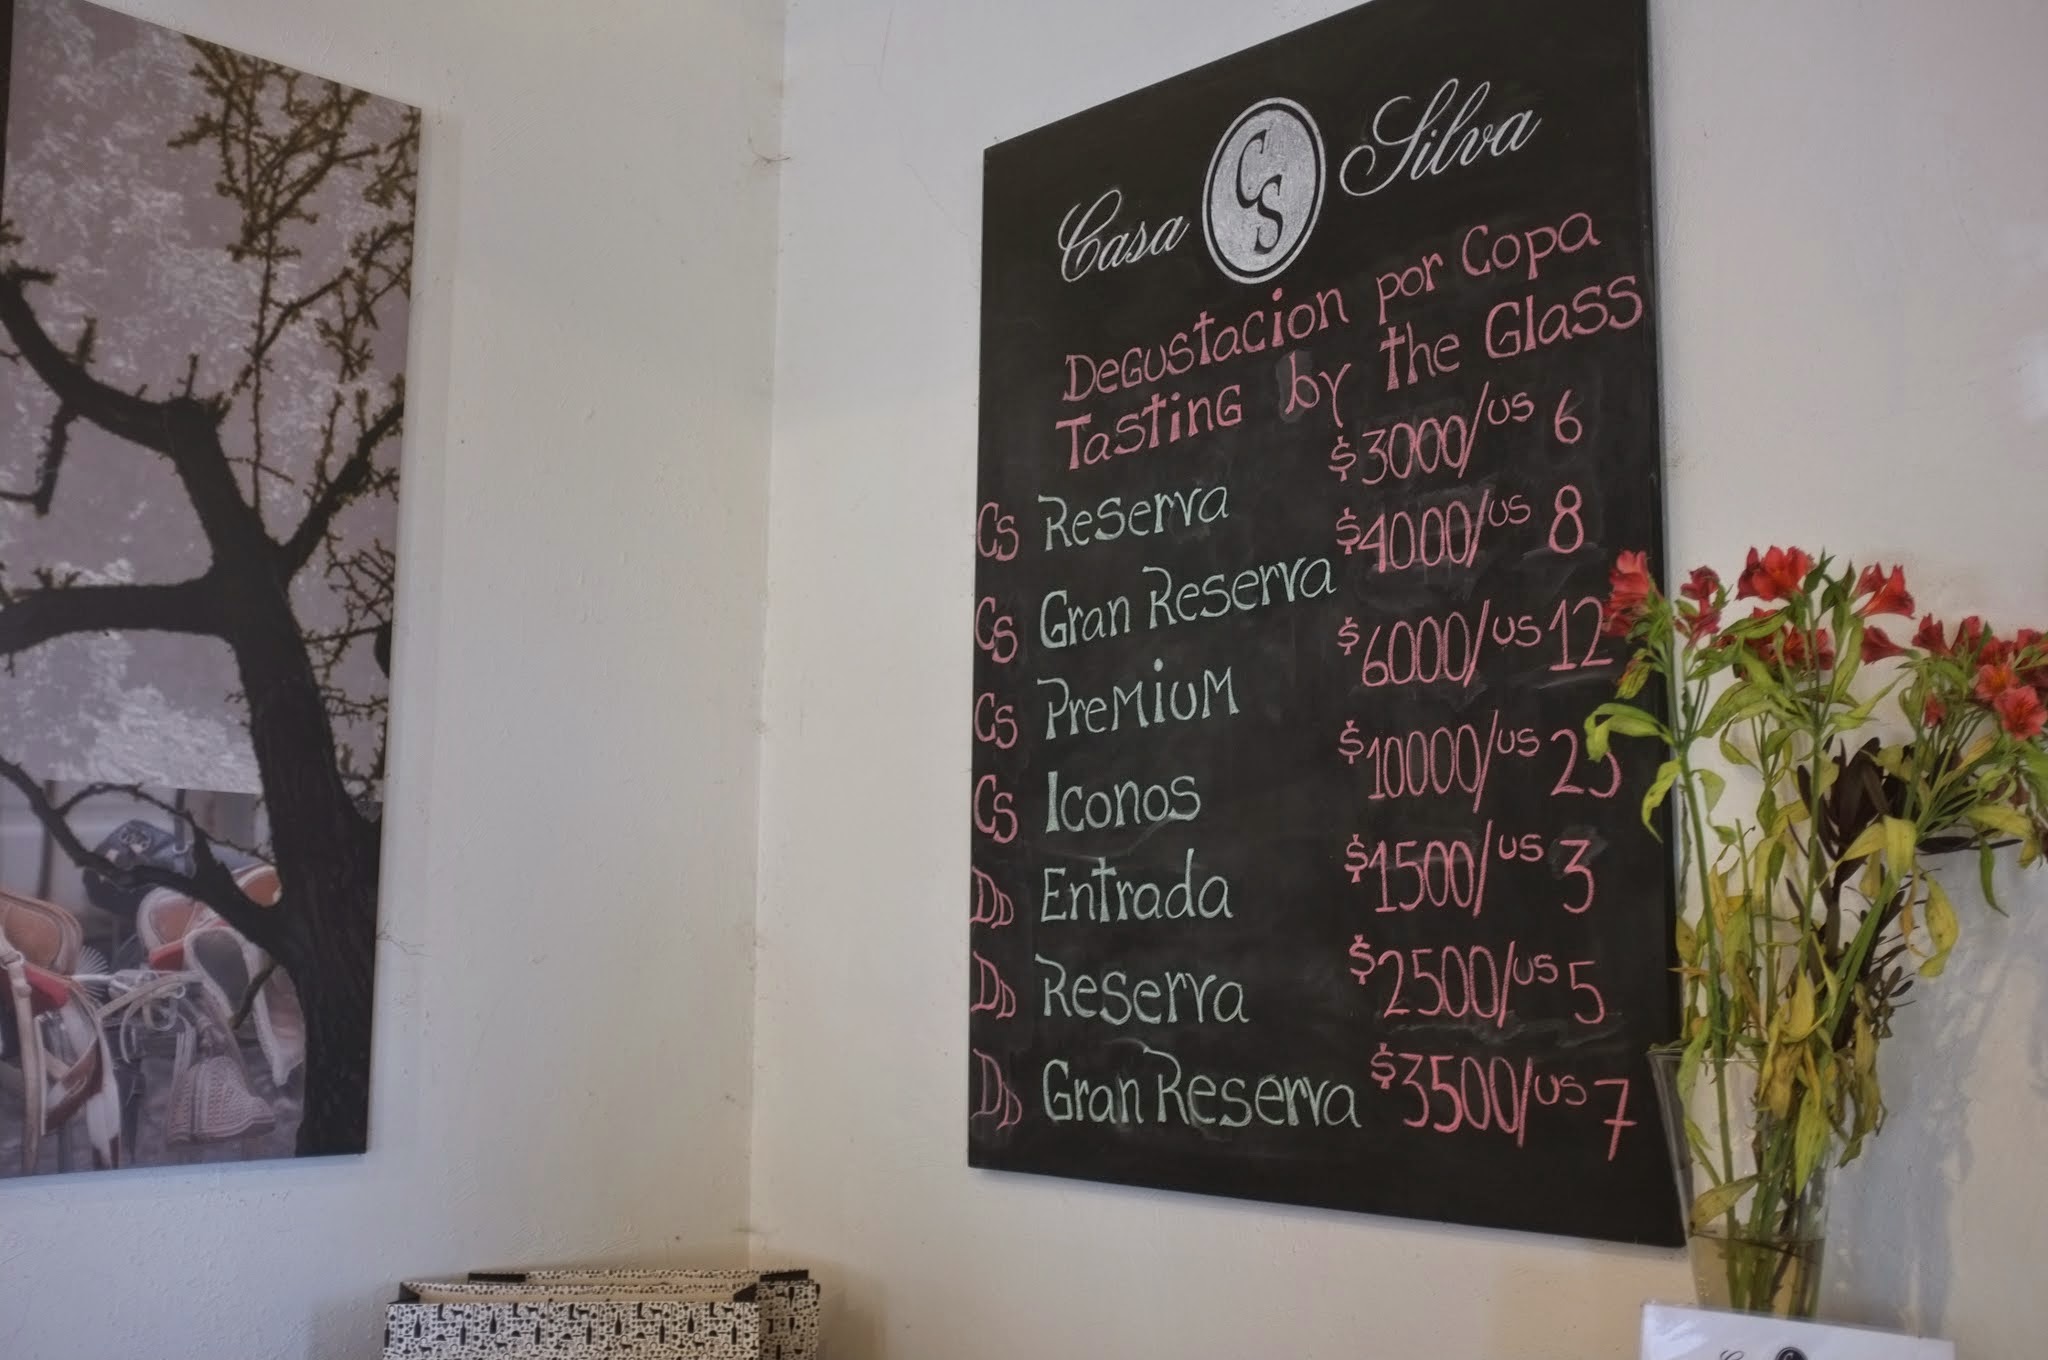 Casa CS Silva
Degustacion por Copa
Tasting by the Glass
CS Reserva $3000/US 6
CS Gran Reserva $4000/US 8
CS Premium $6000/US 12
CS Iconos $10000/US 25
DD Entrada $1500/US 3
DD Reserva $2500/US 5
DD Gran Reserva $3500/US 7